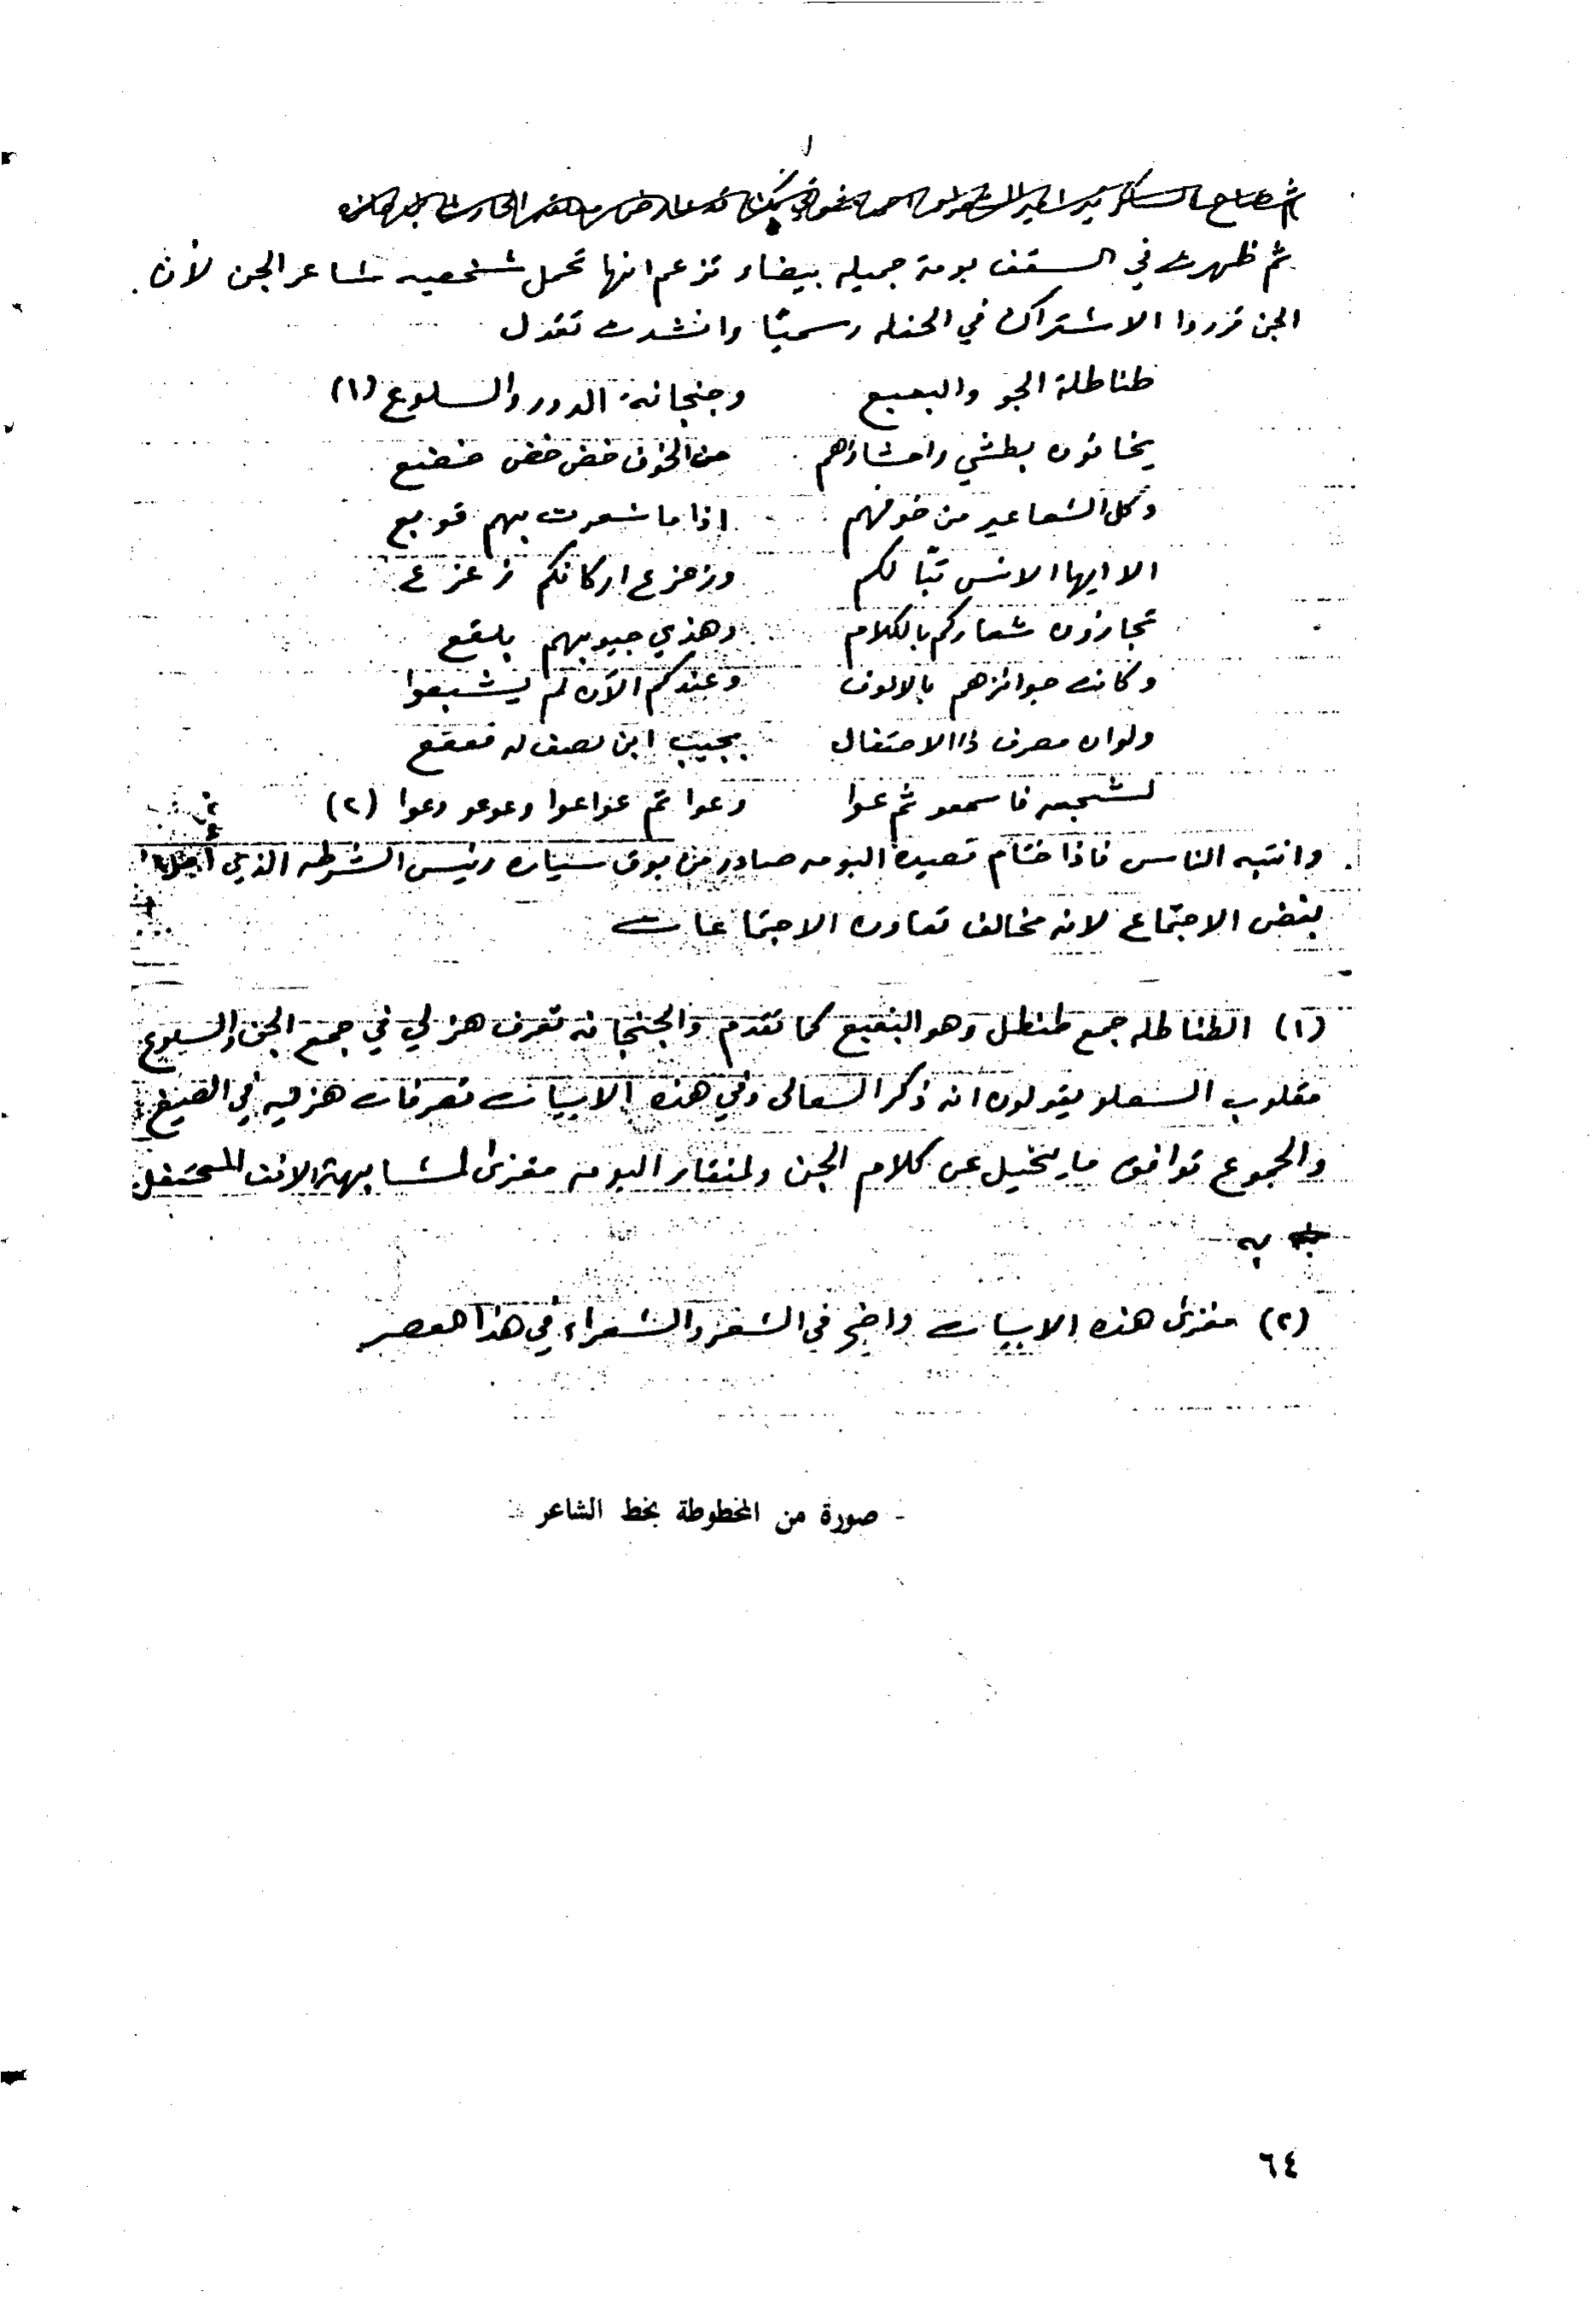 ثم ظهرت في السقف بومة جميله بيضاء تزعم انها تحمل شخصيه شاعر الجن لأن
الجن قرروا الاشتراك في الحفله رسميًا وانشدت تقول
طناطلة الجو والبعبع وجنجانة الدور والسلوع (١)
يخافون بطشي واحشاؤهم من الخوف خض خض خضخع
وكل الشعاعير من خوفهم اذا ما شعرت بهم قوبع
الا ايها الانس تبًا لكم وزحزع اركانكم زعزع
تجازون شعاركم بالكلام وهذي جيوبهم بلقع
وكانت جوائزهم بالالوف وعندكم الآن لم يشبعوا
ولوان مصرف ذا الاحتفال بجيب ابن نصف له قعقع
لشجعه فاسمعو ثم عوا وعوا ثم عواعوا وعوعو وعوا (٢)
وانتبه الناس فاذا ختام قصيدة البومه صادر من بوق سيارة رئيس الشرطه الذي
بفض الاجتماع لانه مخالف لقانون الاجتماعات
(١) الطناطله جمع طنطل وهو البعبع كما تقدم والجنجانه تصرف هزلي في جمع الجن والسلوع
مقلوب السعلو يقولون انه ذكر السعالى وفي هذه الابيات تصرفات هزليه في الصيغ
والجموع توافق ما يتخيل عن كلام الجن ولمنقار البومه مغزى لمشابهة الانف المحتفل
به
(٢) مغزى هذه الابيات واضح في الشعر والشعراء في هذا العصر
- صورة من المخطوطة بخط الشاعر -
٦٤